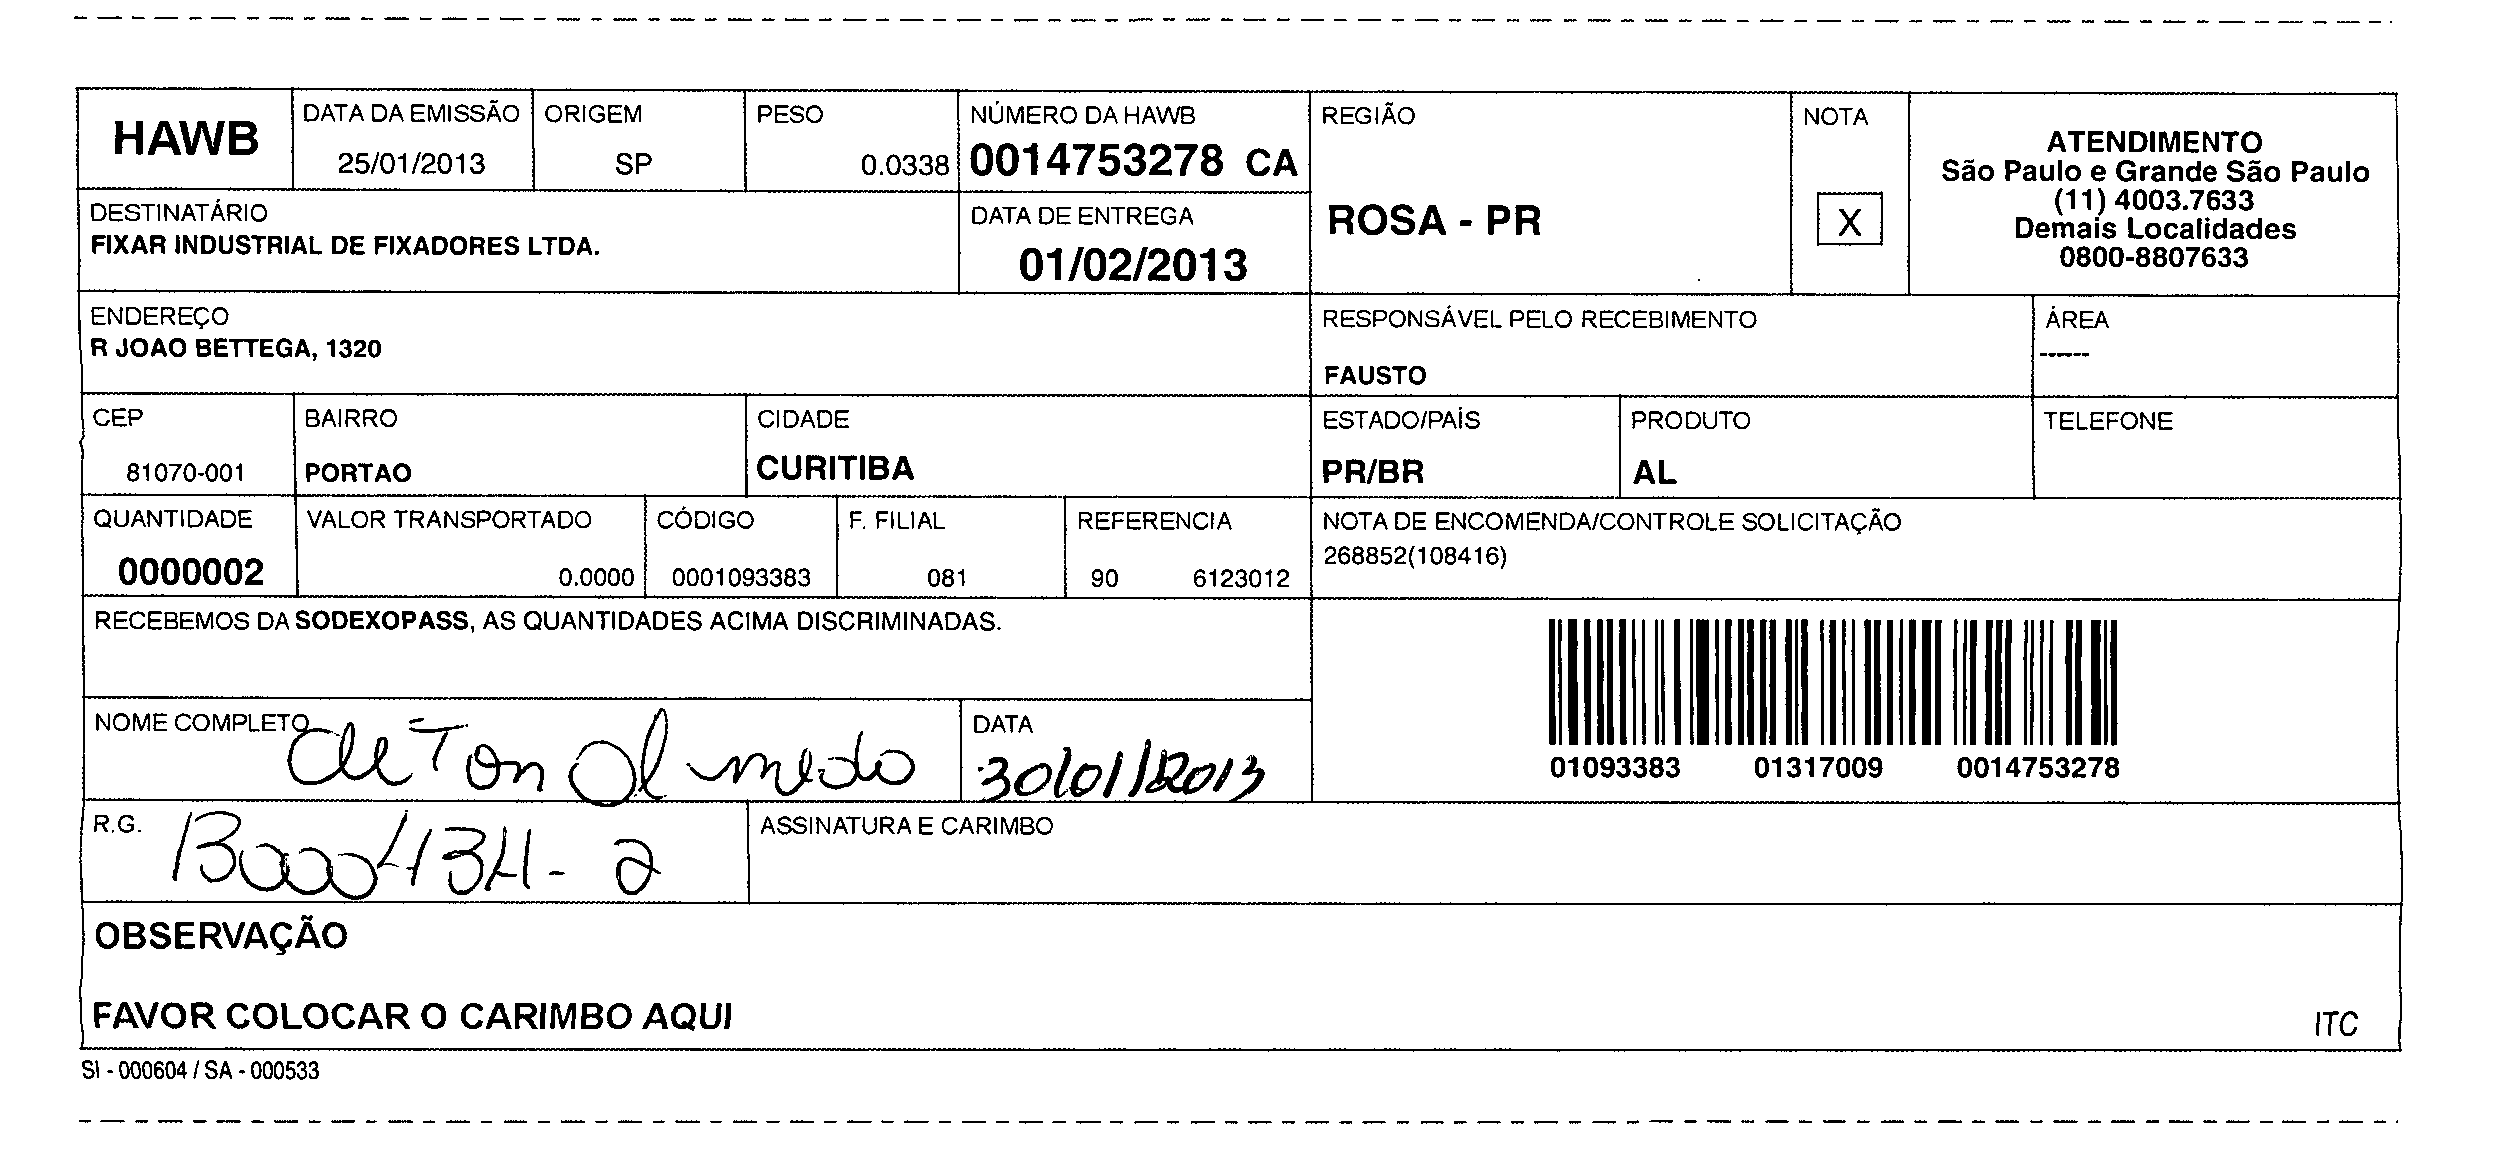 HAWB
DATA DA EMISSÃO
25/01/2013
ORIGEM
SP
PESO
0.0338
NÚMERO DA HAWB
0014753278 CA
REGIÃO
ROSA - PR
NOTA
X
ATENDIMENTO
São Paulo e Grande São Paulo
(11) 4003.7633
Demais Localidades
0800-8807633
DESTINATÁRIO
FIXAR INDUSTRIAL DE FIXADORES LTDA.
DATA DE ENTREGA
01/02/2013
ENDEREÇO
R JOAO BETTEGA, 1320
RESPONSÁVEL PELO RECEBIMENTO
FAUSTO
ÁREA
------
CEP
81070-001
BAIRRO
PORTAO
CIDADE
CURITIBA
ESTADO/PAÍS
PR/BR
PRODUTO
AL
TELEFONE
QUANTIDADE
0000002
VALOR TRANSPORTADO
0.0000
CÓDIGO
0001093383
F. FILIAL
081
REFERENCIA
90 6123012
NOTA DE ENCOMENDA/CONTROLE SOLICITAÇÃO
268852(108416)
RECEBEMOS DA SODEXOPASS, AS QUANTIDADES ACIMA DISCRIMINADAS.
01093383 01317009 0014753278
NOME COMPLETO
DATA
30/01/2013
R.G.
ASSINATURA E CARIMBO
OBSERVAÇÃO
FAVOR COLOCAR O CARIMBO AQUI
ITC
SI - 000604 / SA - 000533